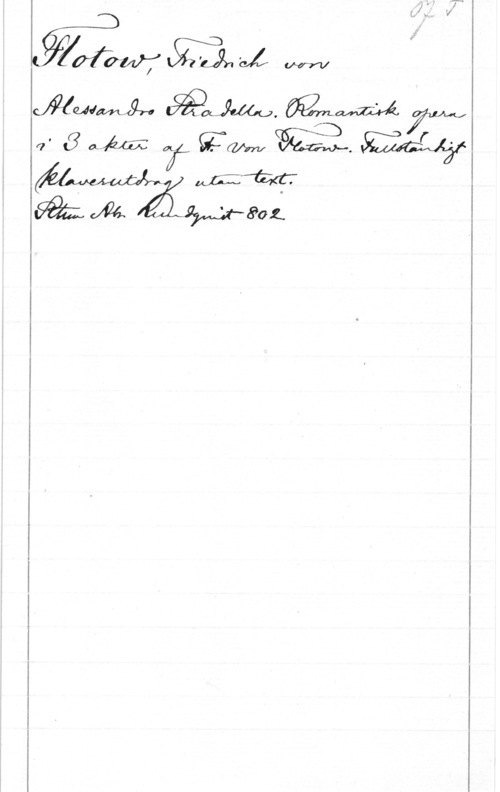 Flotow, Friedrich von
Alessandro Stradella. Romantisk opera
i 3 akter af F. von Flotow. Fullständigt
klaverutdrag utan text.
Sthm Abr. Lundquist 802